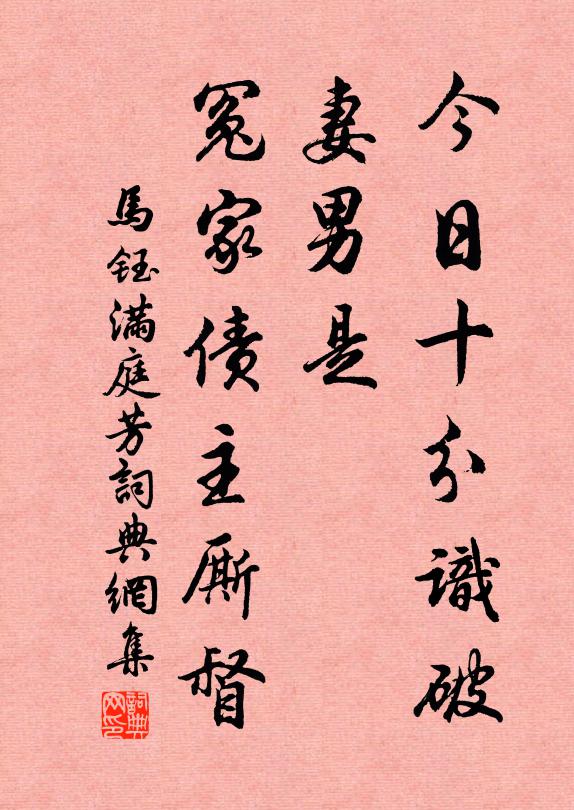 今日十分識破
妻男是
冤家債主厮督
馬鈺滿庭芳詞典網集
詞典网印